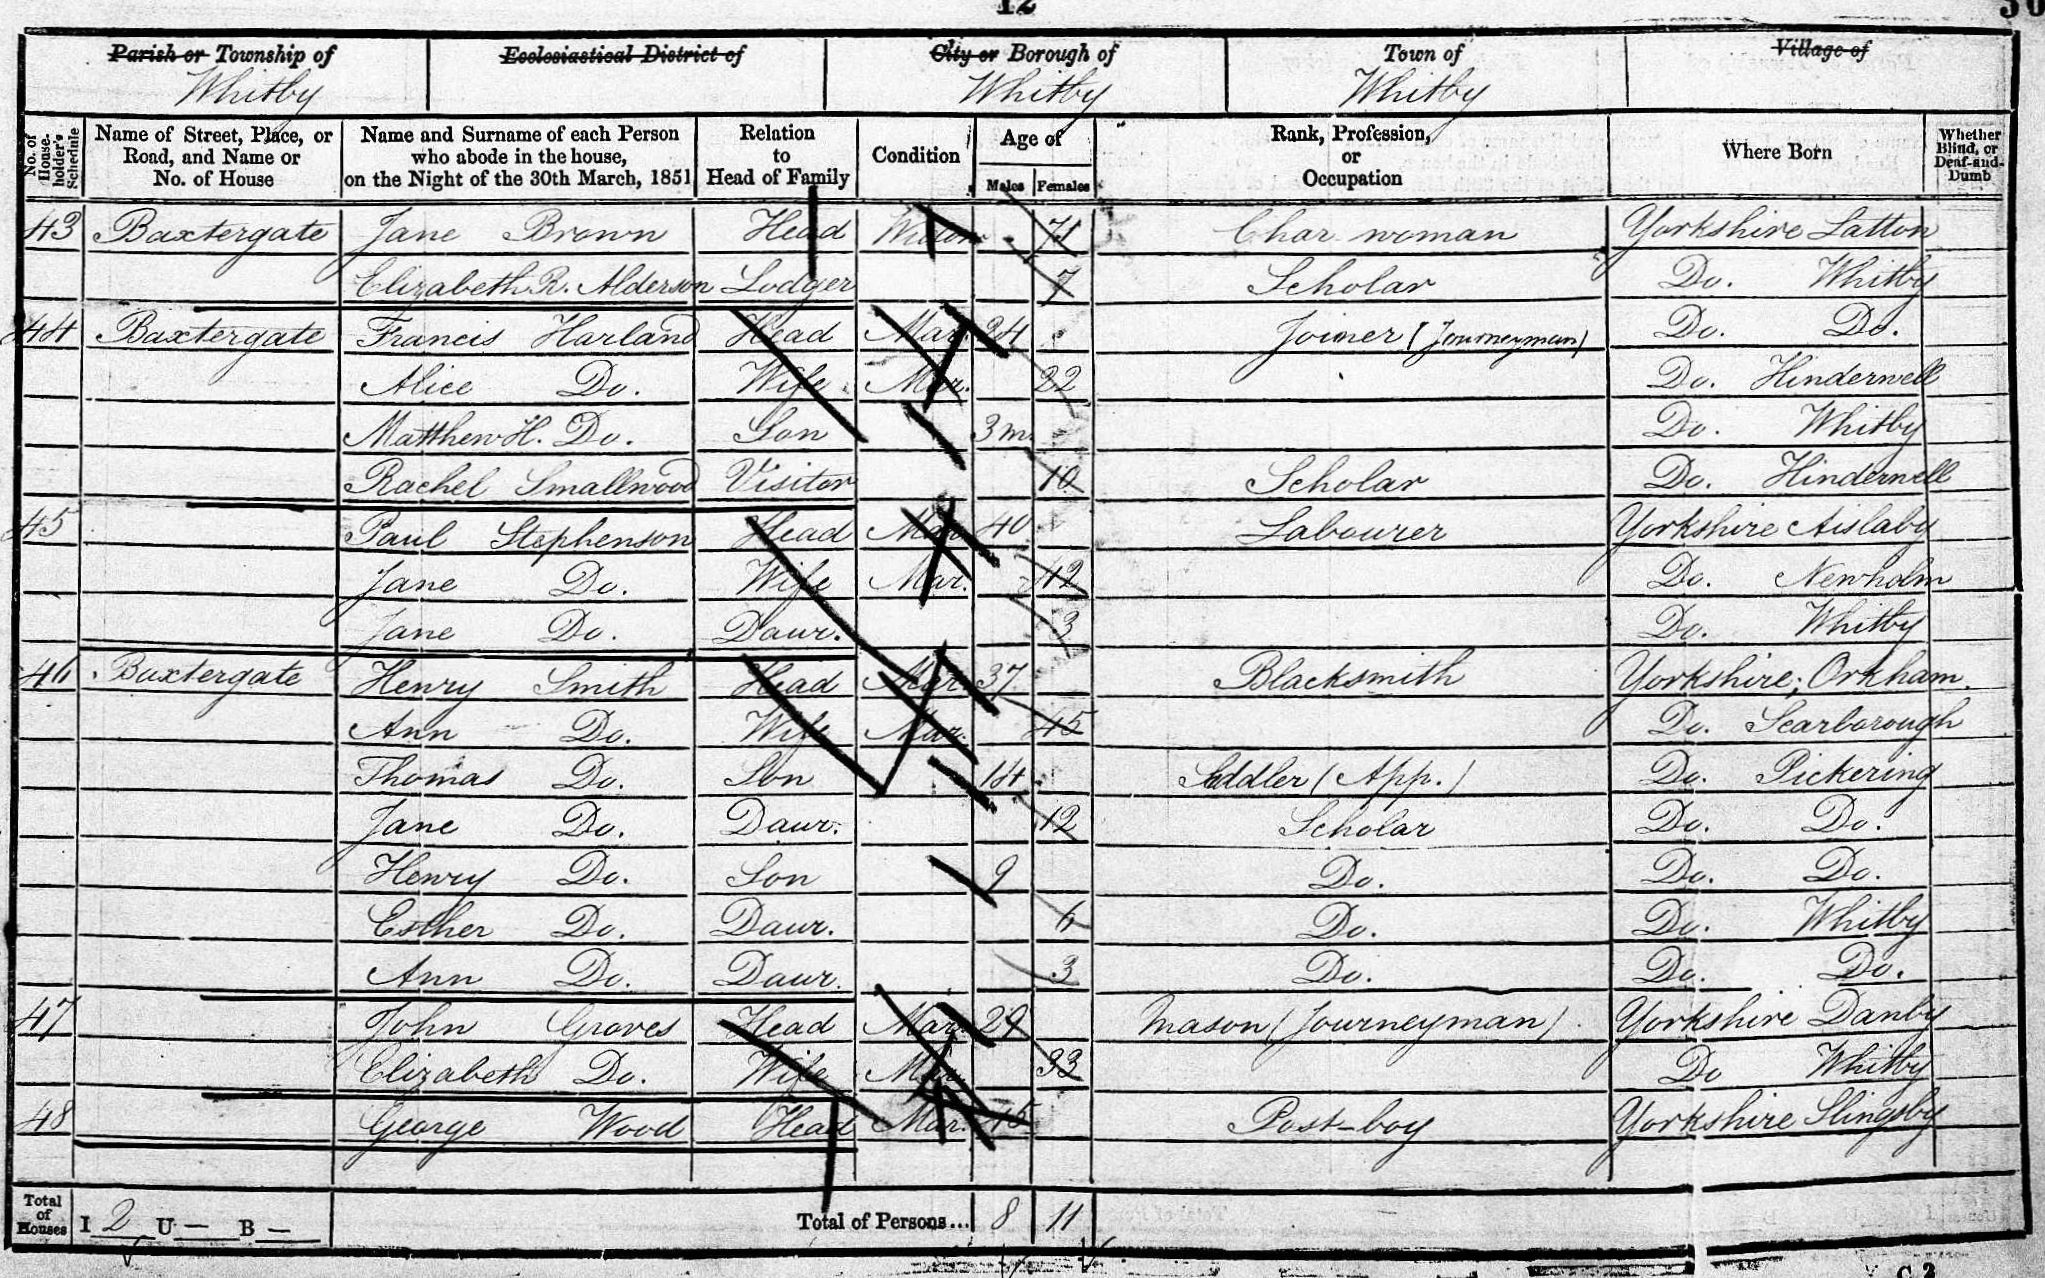 12
30
Parish or Township of
Whitby
Ecclesiastical District of
City or Borough of
Whitby
Town of
Whitby
Village of
No. of House-holder's Schedule
Name of Street, Place, or Road, and Name or No. of House
Name and Surname of each Person who abode in the house, on the Night of the 30th March, 1851
Relation to Head of Family
Condition
Age of
Males Females
Rank, Profession, or Occupation
Where Born
Whether Blind, or Deaf-and-Dumb
43 Baxtergate Jane Brown Head Widow 71 Char woman Yorkshire Latton
Elizabeth R. Alderson Lodger 7 Scholar Do. Whitby
44 Baxtergate Francis Harland Head Mar. 24 Joiner (Journeyman) Do. Do.
Alice Do. Wife Mar. 22 Do. Hinderwell
Matthew H. Do. Son 3m. Do. Whitby
Rachel Smallwood Visitor 10 Scholar Do. Hinderwell
45 Paul Stephenson Head Mar. 40 Labourer Yorkshire Aislaby
Jane Do. Wife Mar. 42 Do. Newholm
Jane Do. Daur. 3 Do. Whitby
46 Baxtergate Henry Smith Head Mar. 37 Blacksmith Yorkshire; Orkham.
Ann Do. Wife Mar. 45 Do. Scarborough
Thomas Do. Son 14 Saddler (App.) Do. Pickering
Jane Do. Daur. 12 Scholar Do. Do.
Henry Do. Son 9 Do. Do. Do.
Esther Do. Daur. 6 Do. Do. Whitby
Ann Do. Daur. 3 Do. Do. Do.
47 John Groves Head Mar. 29 Mason (Journeyman) Yorkshire Danby
Elizabeth Do. Wife Mar. 33 Do Whitby
48 George Wood Head Mar. 45 Post-boy Yorkshire Slingsby
Total of Houses I 2 U — B — Total of Persons... 8 11
C 2